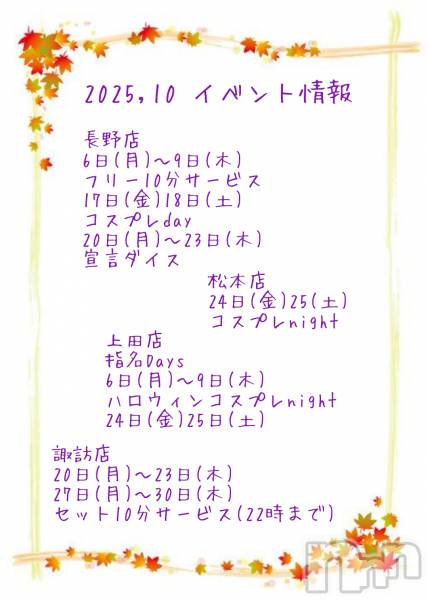 2025,10 イベント情報
長野店
6日(月)～9日(木)
フリー10分サービス
17日(金)18日(土)
コスプレday
20日(月)～23日(木)
宣言ダイス
松本店
24日(金)25(土)
コスプレnight
上田店
指名Days
6日(月)～9日(木)
ハロウィンコスプレnight
24日(金)25日(土)
諏訪店
20日(月)～23日(木)
27日(月)～30日(木)
セット10分サービス(22時まで)